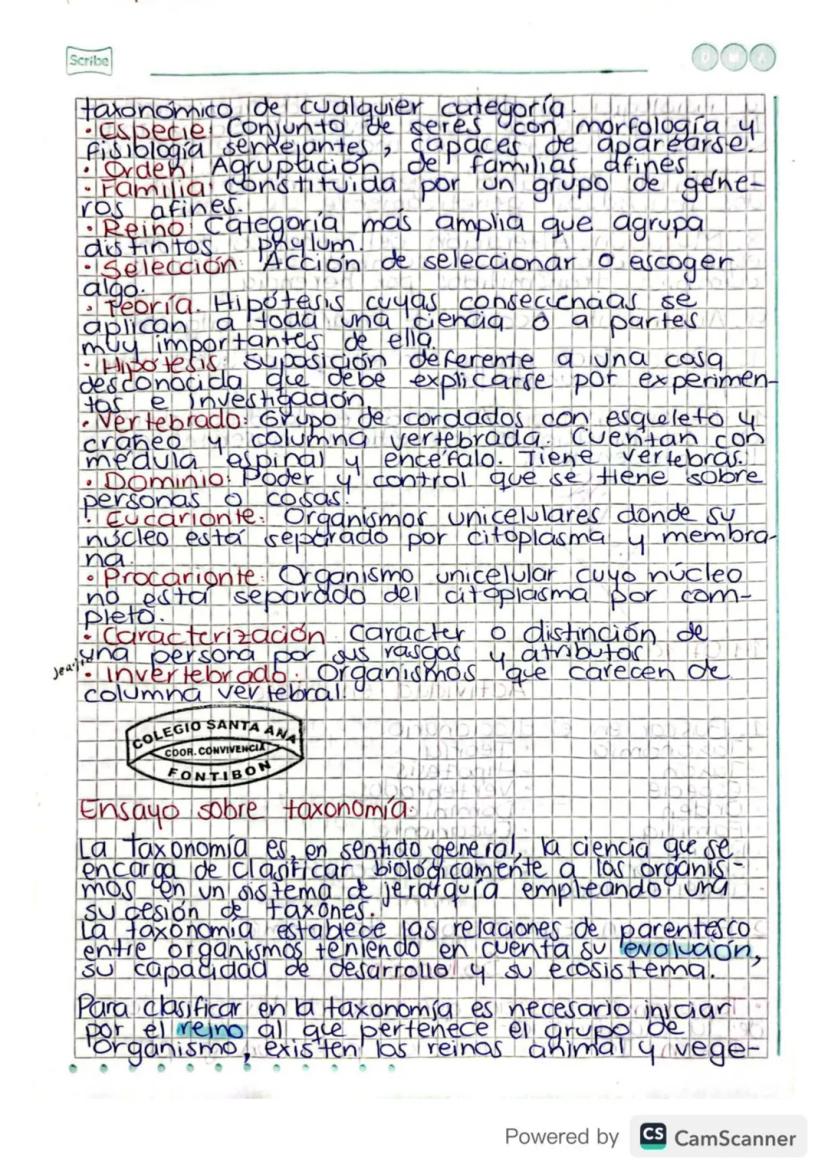 Scribe
D M A
taxonómico de cualquier categoría.
• Especie: Conjunto de seres con morfología y
fisiología semejantes, capaces de aparearse.
• Orden: Agrupación de familias afines.
• Familia: constituida por un grupo de géne-
ros afines.
• Reino: Categoría más amplia que agrupa
distintos phylum.
• Selección: Acción de seleccionar o escoger
algo.
• Teoría. Hipótesis cuyas consecuencias se
aplican a toda una ciencia o a partes
muy importantes de ella.
• Hipótesis: suposición deferente a una cosa
desconocida que debe explicarse por experimen-
tos e investigación.
• Vertebrado: Grupo de cordados con esqueleto y
cráneo y columna vertebrada. Cuentan con
médula espinal y encéfalo. Tiene vertebras.
• Dominio: Poder y control que se tiene sobre
personas o cosas.
• Eucarionte: Organismos unicelulares donde su
núcleo está separado por citoplasma y membra-
na.
• Procarionte: Organismo unicelular cuyo núcleo
no está separado del citoplasma por com-
pleto.
• Caracterización: Caracter o distinción de
una persona por sus rasgos y atributos
• Invertebrado: Organismos que carecen de
columna vertebral.
COLEGIO SANTA ANA
COOR. CONVIVENCIA
FONTIBON
Ensayo sobre taxonomía:
La taxonomía es, en sentido general, la ciencia que se
encarga de clasificar biológicamente a los organis-
mos en un sistema de jerarquía empleando una
sucesión de taxones.
La taxonomía establece las relaciones de parentesco
entre organismos teniendo en cuenta su evolución,
su capacidad de desarrollo y su ecosistema.
Para clasificar en la taxonomía es necesario iniciar
por el reino al que pertenece el grupo de
organismo, existen los reinos animal y vege-
Powered by CS CamScanner